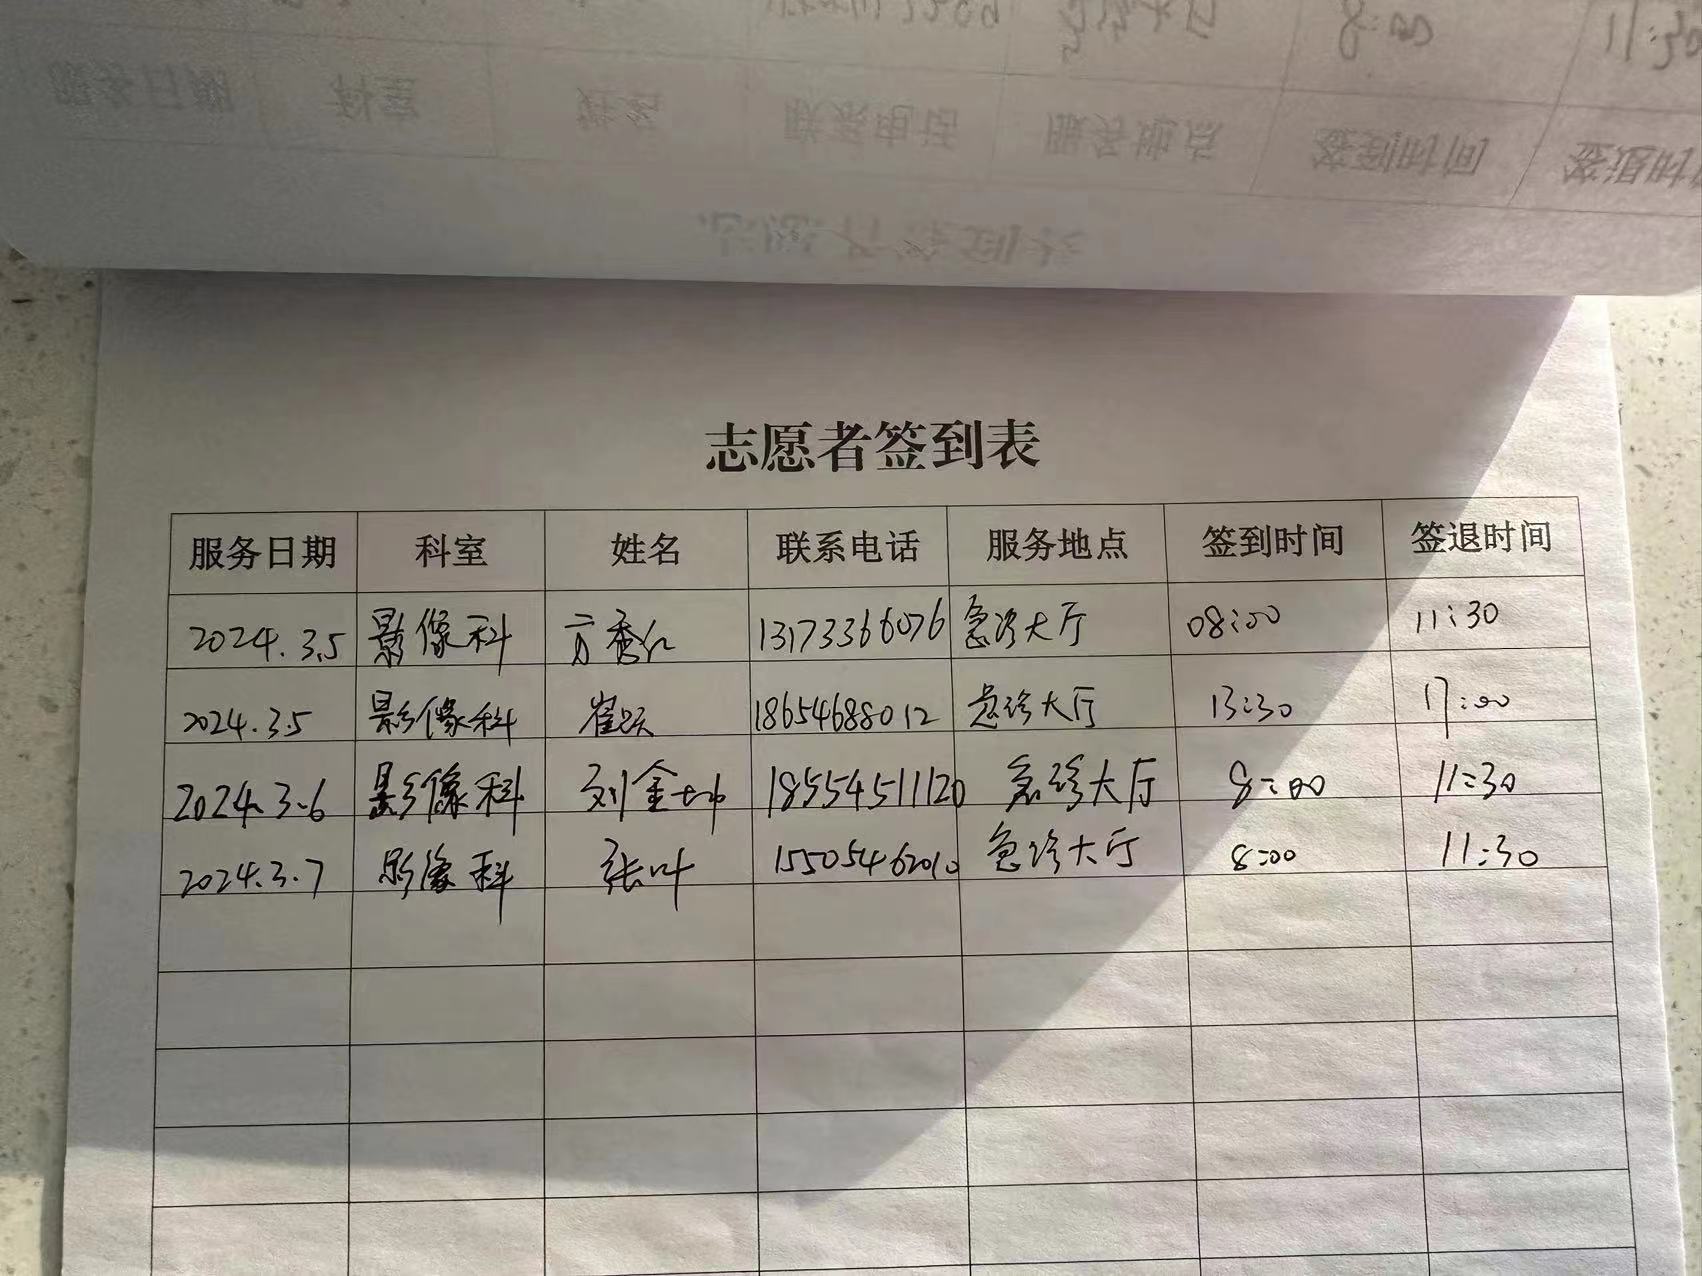 志愿者签到表
服务日期 科室 姓名 联系电话 服务地点 签到时间 签退时间
2024.3.5 影像科 方秀仁 13173366076 急诊大厅 08:00 11:30
2024.3.5 影像科 崔跃 18654688012 急诊大厅 13:30 17:00
2024.3.6 影像科 刘金坤 18554511120 急诊大厅 8:00 11:30
2024.3.7 影像科 张叶 15505462010 急诊大厅 8:00 11:30